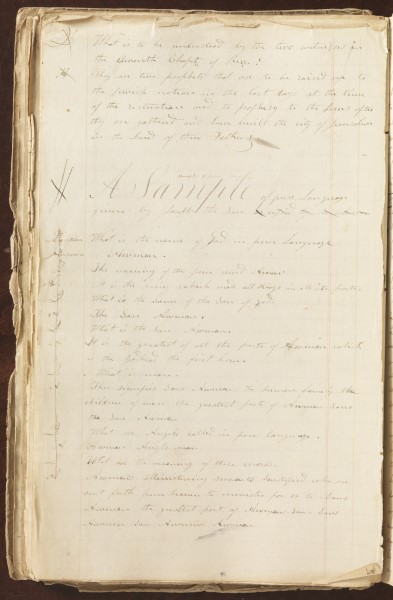 Q What is to be understood by the two witnesses in
the eleventh Chapt. of Rev.?
A They are two prophets that are to be raised up to
the jewish nation in the last days at the time
of the restoration and to prophecy to the Jews after
they are gathered and have built the city of Jerusalem
in the land of their Fathers
A Sample of pure Language
given by Joseph the Seer
Question What is the name of God in pure Language
Answer Awmen.
Q The meaning of the pure word Awmen
A It is the being which made all things in all its parts
Q What is the name of the Son of God.
A The Son Awmen.
Q What is the Son Awmen.
A It is the greatest of all the parts of Awmen which
is the Godhead the first born.
Q What is man.
A This signifies Sons Awmen the human family the
children of men the greatest parts of Awmen Sons
the Son Awmen
Q What are Angels called in pure language.
A Awmen Angls-men
Q What are the meaning of these words.
A Awmen's
sent forth from heaven to minister for or to Sons
Awmen the greatest part of Awmen Son. Sons
Awmen Son Awmen Awmen